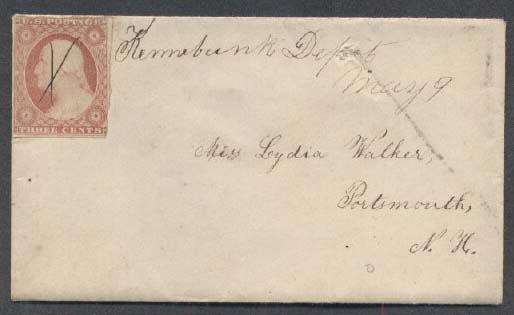 U.S. POSTAGE
THREE CENTS
Kennebunk Depot
May 9
Miss Lydia Walker,
Portsmouth,
N. H.